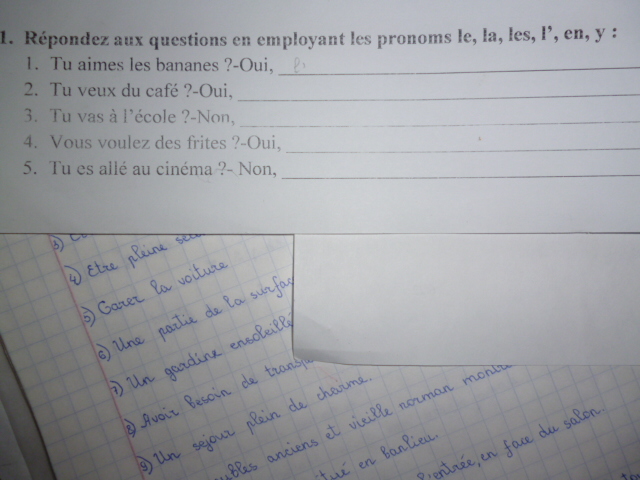 1. Répondez aux questions en employant les pronoms le, la, les, l’, en, y :
1. Tu aimes les bananes ?-Oui,
2. Tu veux du café ?-Oui,
3. Tu vas à l’école ?-Non,
4. Vous voulez des frites ?-Oui,
5. Tu es allé au cinéma ?- Non,
3)
4) Etre pleine
5) Garer la voiture
6) Une partie de la surfac
7) Un gardine ensoleillé
8) Avoir besoin de transp
9) Un sejour plein de charme.
ubles anciens et vieille norman montr
tué en banlieu.
l'entrée, en face du salon.